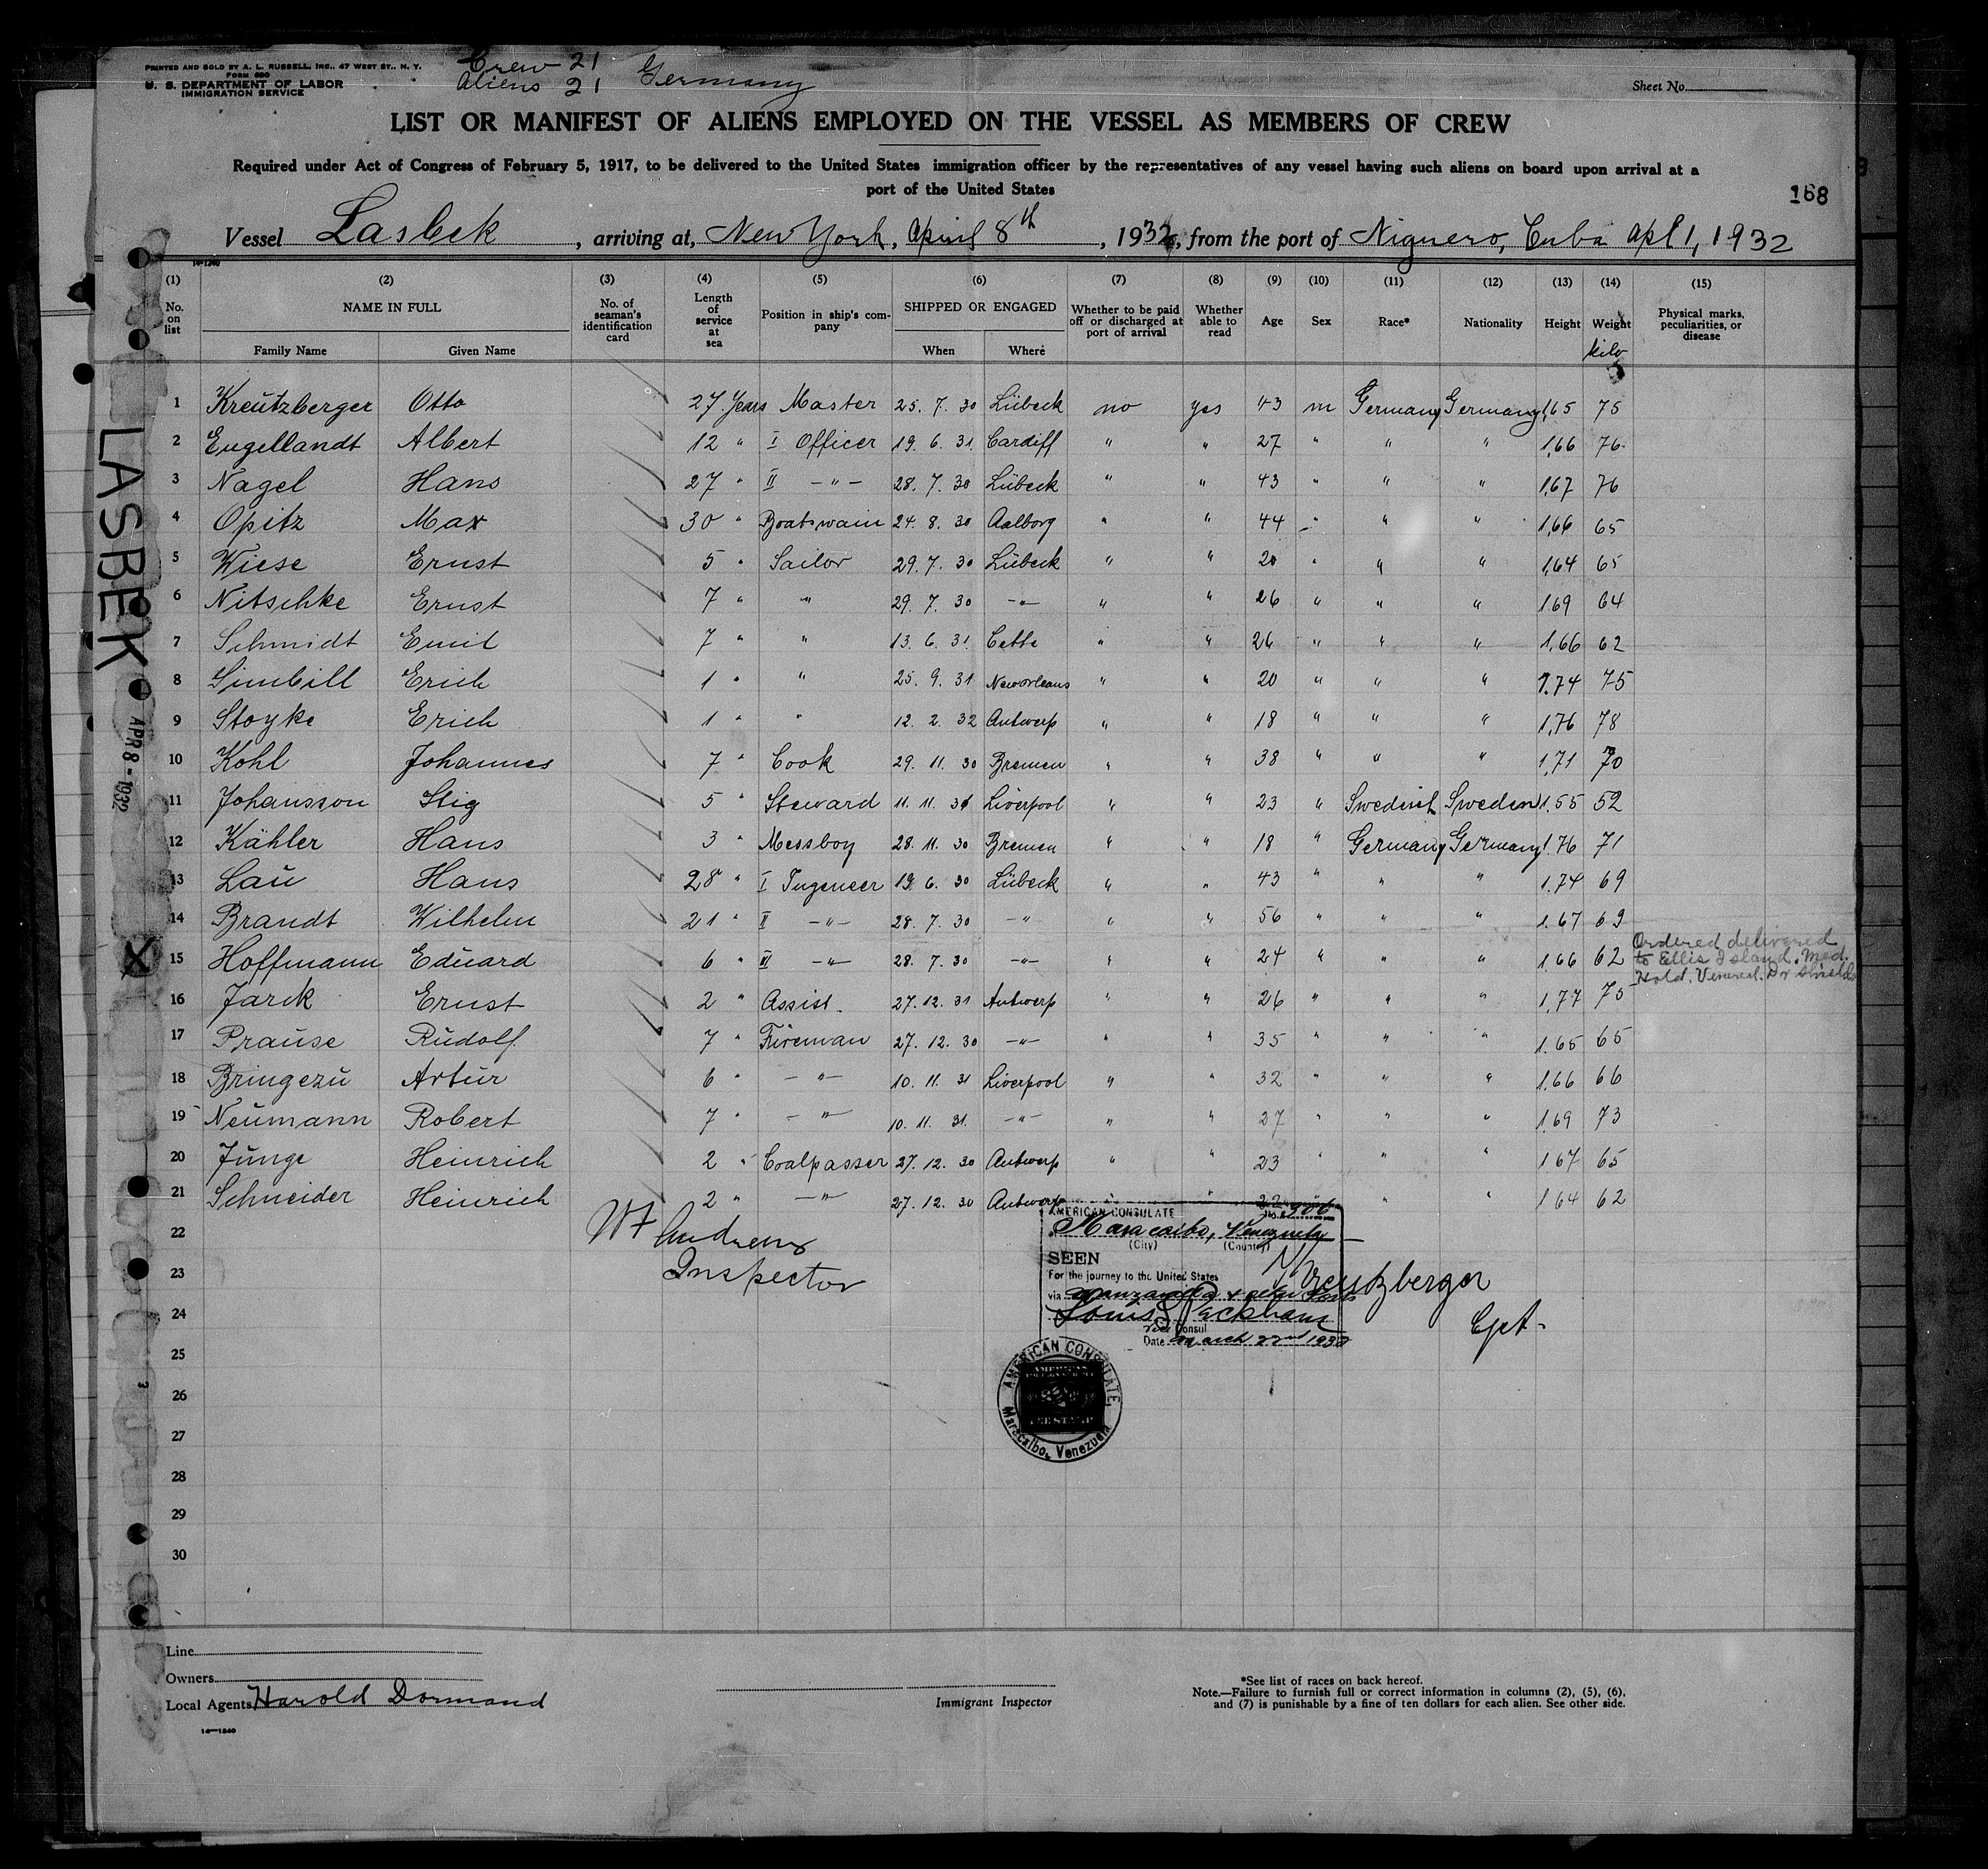 PRINTED AND SOLD BY A. L. RUSSELL, INC., 47 WEST ST., N. Y.
FORM 680
U. S. DEPARTMENT OF LABOR
IMMIGRATION SERVICE
Crew 21
Aliens 21 Germany
Sheet No.
LIST OR MANIFEST OF ALIENS EMPLOYED ON THE VESSEL AS MEMBERS OF CREW
Required under Act of Congress of February 5, 1917, to be delivered to the United States immigration officer by the representatives of any vessel having such aliens on board upon arrival at a
port of the United States
168
Vessel Lasbek, arriving at, New York, April 8th, 1932, from the port of Niquero, Cuba Apl 1, 1932
14-1240
(1) (2) (3) (4) (5) (6) (7) (8) (9) (10) (11) (12) (13) (14) (15)
No. on list NAME IN FULL No. of seaman's identification card Length of service at sea Position in ship's company SHIPPED OR ENGAGED Whether to be paid off or discharged at port of arrival Whether able to read Age Sex Race* Nationality Height Weight Physical marks, peculiarities, or disease
Family Name Given Name When Where kilo
1 Kreutzberger Otto 27 Years Master 25. 7. 30 Lübeck no yes 43 m Germany Germany 1,65 75
2 Engellandt Albert 12 " I Officer 19. 6. 31. Cardiff " " 27 " " " 1,66 76
3 Nagel Hans 27 " II -"- 28. 7. 30 Lübeck " " 43 " " " 1,67 76
4 Opitz Max 30 " Boatswain 24. 8. 30 Aalborg " " 44 " " " 1,66 65
5 Wiese Ernst 5 " Sailor 29. 7. 30 Lübeck " " 20 " " " 1,64 65
6 Nitschke Ernst 7 " " 29. 7. 30 -"- " " 26 " " " 1,69 64
7 Schmidt Emil 7 " " 13. 6. 31. Cette " " 26 " " " 1,66 62
8 Simbill Erich 1 " " 25. 9. 31 New orleans " " 20 " " " 1,74 75
9 Stoyke Erich 1 " " 12. 2. 32 Antwerp " " 18 " " " 1,76 78
10 Kohl Johannes 7 " Cook 29. 11. 30 Bremen " " 38 " " " 1,71 70
11 Johansson Stig 5 " Steward 11. 11. 31 Liverpool " " 23 " Swedish Sweden 1,55 52
12 Kähler Hans 3 " Messboy 28. 11. 30 Bremen " " 18 " Germany Germany 1.76 71
13 Lau Hans 28 " I Ingeneer 19. 6. 30 Lübeck " " 43 " " " 1.74 69
14 Brandt Wilhelm 21 " II -"- 28. 7. 30 -"- " " 56 " " " 1.67 69
15 Hoffmann Eduard 6 " III -"- 28. 7. 30 -"- " " 24 " " " 1.66 62 Ordered delivered
to Ellis Island. Med.
Hold. Venereal. Dr Shields
16 Jarck Ernst 2 " Assist. 27. 12. 31 Antwerp " " 26 " " " 1,77 75
17 Prause Rudolf 7 " Fireman 27. 12. 30 -"- " " 35 " " " 1.65 65
18 Bringezu Artur 6 " -"- 10. 11. 31 Liverpool " " 32 " " " 1.66 66
19 Neumann Robert 7 " -"- 10. 11. 31. -"- " " 27 " " " 1.69 73
20 Junge Heinrich 2 " Coalpasser 27. 12. 30 Antwerp " " 23 " " " 1 67 65
21 Schneider Heinrich 2 " -"- 27. 12. 30 Antwerp " " 22 " " 1 64 62
22
23
24
25
26
27
28
29
30
W F Andrews
Inspector
AMERICAN CONSULATE
Maracaibo, Venezuela
(City) (Country)
SEEN
For the journey to the United States
via Manzanillo
Louis Packham
Vice Consul
Date March 22nd 1932
Kreutzberger
Cpt.
AMERICAN CONSULATE
Maracaibo, Venezuela
LASBEK
APR 8 - 1932
X
Line
Owners
Local Agents Harold Dormand
14-1240
Immigrant Inspector
*See list of races on back hereof.
Note.—Failure to furnish full or correct information in columns (2), (5), (6),
and (7) is punishable by a fine of ten dollars for each alien. See other side.